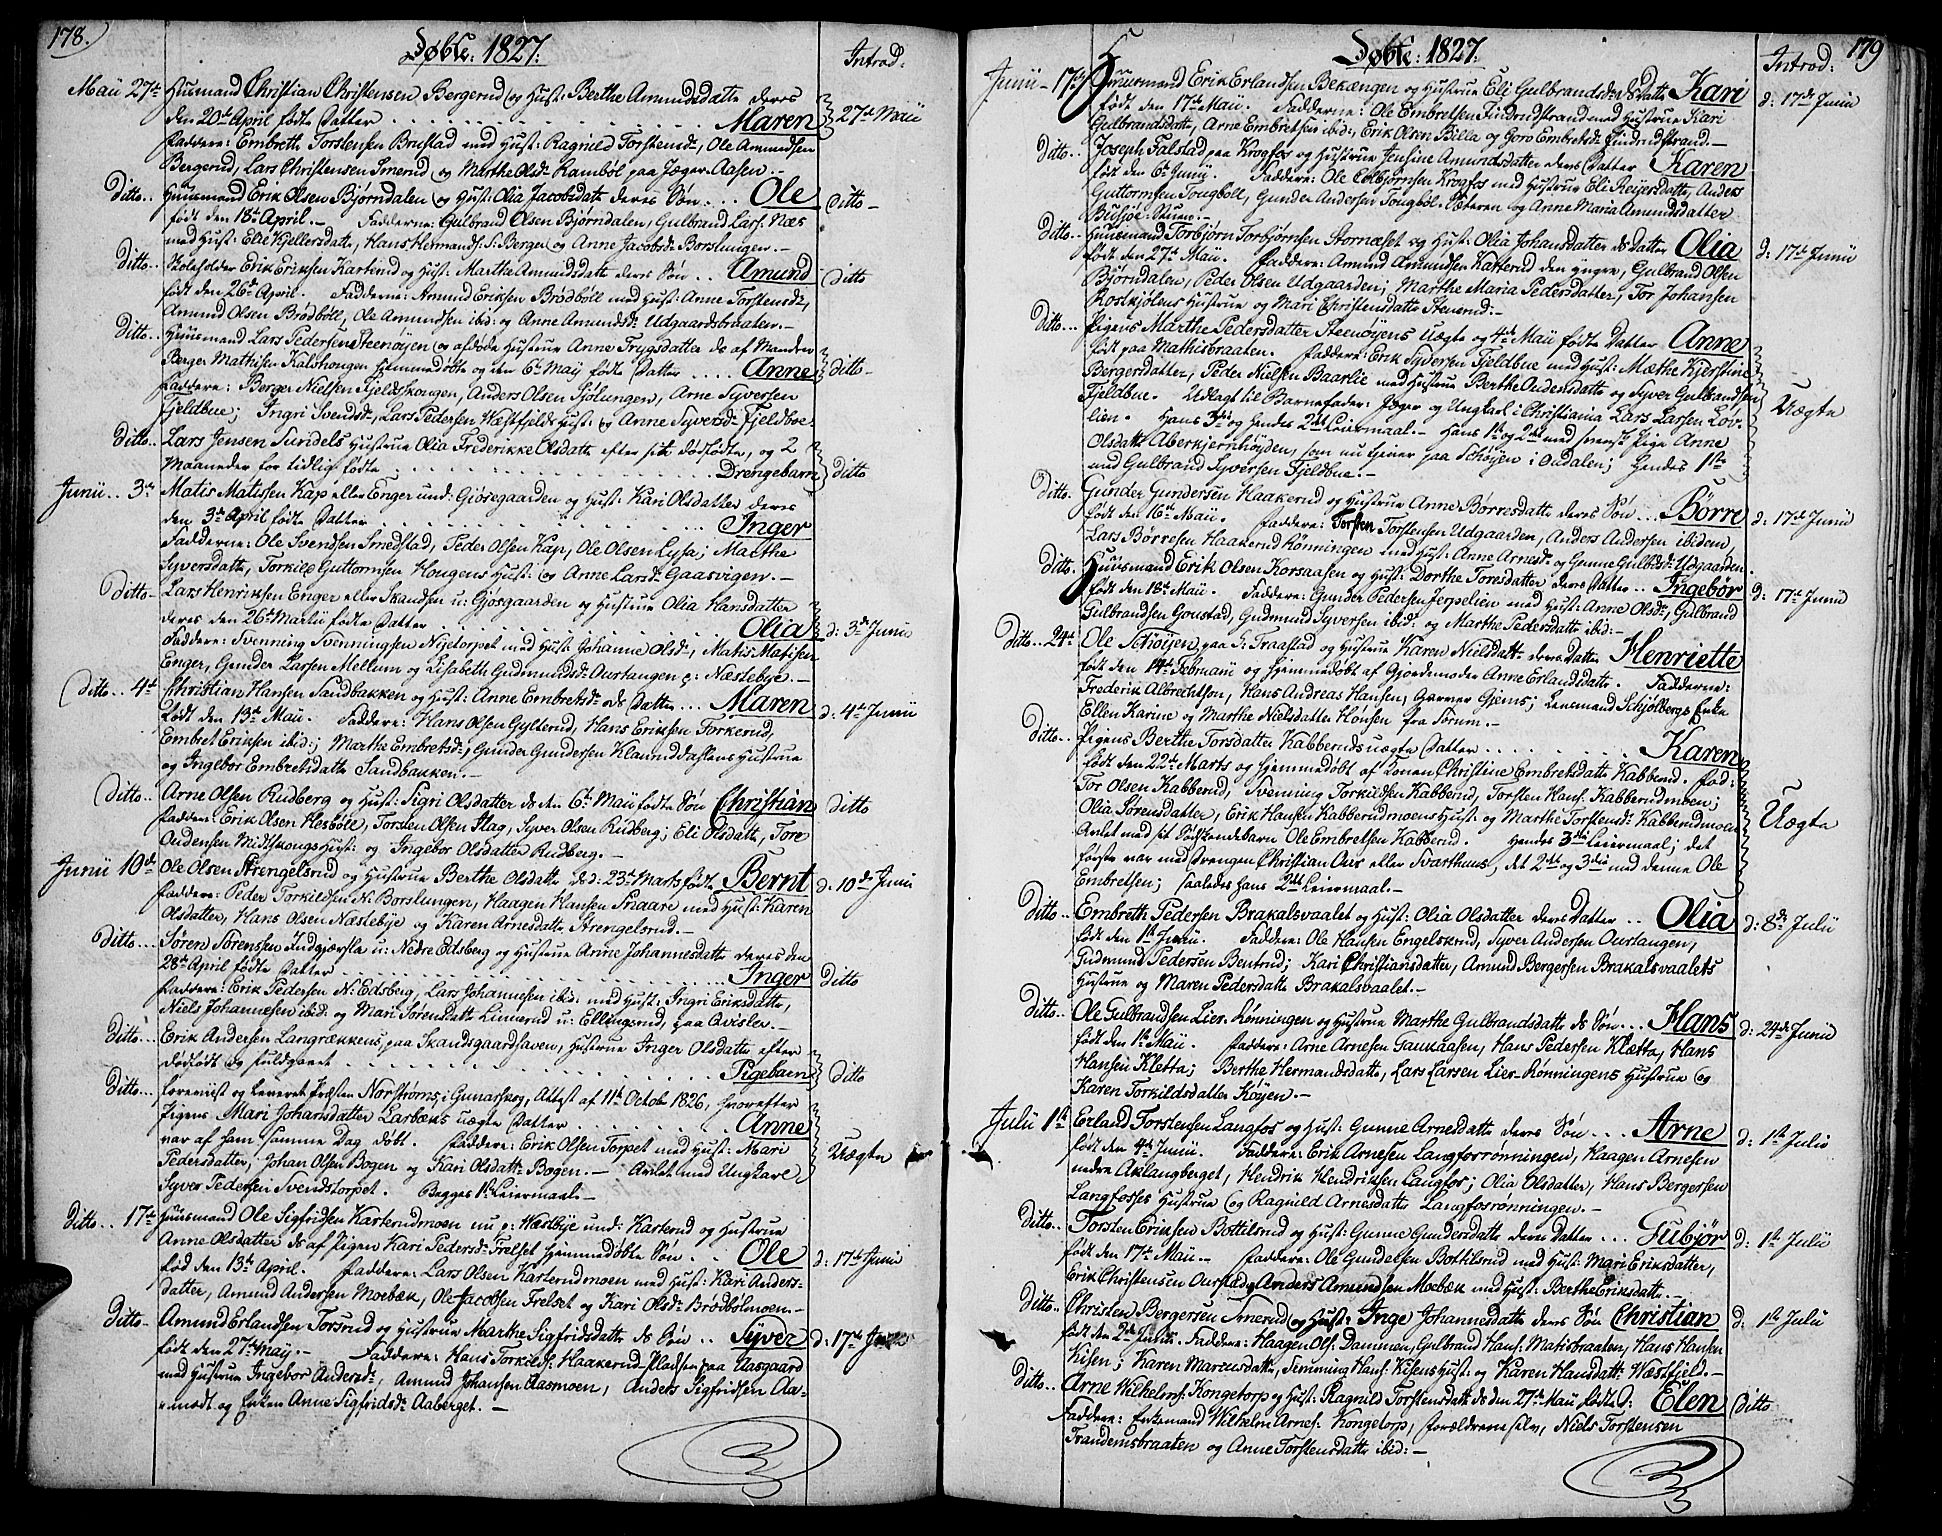 178.
Døbte: 1827.
Introd:
Maii 27de Huusmand Christian Christensen Bergerud og Hust: Berthe Amundsdatte deres
den 20de April fødte Datter . . . Maren 27de Maii
Faddere: Embreth Torstensen Brustad med Hust: Ragnild Torstensd:, Ole Amundsen
Bergerud, Lars Christensen Smerud og Marthe Olsd: Rambøl paa Jæger-Aasen.-
Ditto.. Huusmand Erik Olsen Bjørndalen og Hust: Olia Jacobsdatte deres Søn . . . Ole Ditto-
født den 18de April.- Fadderne: Gulbrand Olsen Bjørndalen, Gulbrand Lars: Næs
med Hust: Elie Kjellersdatte, Hans Hermands: S: Berger og Anne Jacobsd: Borstungen.-
Ditto.. Skoleholder Erik Eriksen Karterud og Hust: Marthe Amundsdatte deres Søn .. Amund Ditto
født den 26de April. Fadderne: Amund Eriksen Brødbøll med Hust: Anne Torstensd:,
Amund Olsen Brødbøll, Ole Amundsen ibid: og Anne Amundsd: Udgaardsbraaten.-
Ditto.. Huusmand Lars Pedersen Steenøyen og afdøde Hustrue Anne Trygsdatter ds af Manden
Berger Mathisen Kalshougen hjemmedøbte og den 6te Maÿ fødte Datter .... Anne Ditto-
Faddere: Berger Nielsen Fjeldshougen, Anders Olsen Sjølungen, Arne Syversen
Fjeldbue; Ingri Svendsd:, Lars Pedersen Wæstfjelds Hust: og Anne Syversd: Fjeldboe.
Ditto.. Lars Jensen Sundets Hustrue Olia Frederikke Olsdatte efter sit dødfødte, og 2
Maaneder for tidlig fødte . . . Drengebarn Ditto
Junii .. 3de Matis Matissen Kap eller Enger und: Gjøsegaarden og Hust: Kari Olsdatter deres
den 3de April fødte Datter . . . Inger
Fadderne: Ole Svendsen Smedstad, Peder Olsen Kap, Ole Olsen Lysa; Marthe
Syversdatte, Torkild Guttormsen Hougens Hust: og Anne Larsd: Gaasvigen.-
Ditto- Lars Henriksen Enger eller Skandsen u: Gjøsgaarden og Hustrue Olia Hansdatter
deres den 26de Martii fødte Datter . . . Olia d: 3de Junii
Faddere: Svenning Svenningsen Nijetorpet med Hust: Johanne Olsd:, Matis Matisen
Enger, Gunder Larsen Mellum og Lisabeth Gudmundsd: Ourtangen p: Næstebye.-
Ditto .. 4de Christian Hansen Sandbakken og Hust: Anne Embretsd: ds Datter ... Maren d: 4de Junii
født den 13de Maii. Faddere: Hans Olsen Gylterud, Hans Eriksen Torkerud,
Embret Eriksen ibid:; Marthe Embretsd:, Gunder Gundersen Klanderuddahlens Hustrue
og Ingebor Embretsdatte Sandbakken.-
Ditto.. Arne Olsen Rudberg og Hust: Sigri Olsdatter ds den 6te Maii fødte Søn Christian Ditto
Fadder: Erik Olsen Hesbøll, Torsten Olsen Flag, Syver Olsen Rudberg; Eli Olsdatte, Tore
Audensen Midtskougs Hust: og Ingebor Olsdatter Rudberg.-
Junii 10de Ole Olsen Strengelsrud og Hustrue Berthe Olsdatte ds d: 23de Marts fødte Bernt d: 10de Junii
Faddere: Peder Torkildsen N: Borstungen, Haagen Hansen Snaare med Hust: Karen
Olsdatter, Hans Olsen Næstebye og Karen Arnesdatte Strengelsrud.-
Ditto... Søren Sørensen Indgjærsla u: Nedre Edsberg og Hustrue Anne Johannesdatte deres den
28de April fødte Datter . . . Inger Ditto
Faddere: Erik Pedersen N: Edsberg, Lars Johannesen ibid: med Hust: Ingri Eriksdatte,
Niels Johannesen ibid: og Mari Sørensdatte Linnerud u: Ellingsrud, paa Qvisler.-
Ditto.. Erik Andersen Langrækkens paa Skandsgaardhaven, Hustrue Inger Olsdatte efter
dødfødt og fuldgaaet . . . Pigebarn Ditto
Ditto... Foreviist og leveret Præsten Norstrøms i Gunarskog, Attest af 11te Octob 1826, hvorefter
Pigens Mari Johansdatter Larbæks uægte Datter . . . Anne
var af ham samme Dag døbt. Faddere: Erik Olsen Torpet med Hust: Mari Uægte
Pedersdatter, Johan Olsen Bogen og Kari Olsdatte Bogen.- Avlet med Ungkarl
Syver Pedersen Svendstorpet. Begges 1te Leiermaal.-
Ditto .. 17de Huusmand Ole Sigfridsen Karterudmoen nu p: Wæstbye und: Karterud og Hustrue
Anne Olsdatter ds af Pigen Kari Pedersd: Frelset hjemmedøbte Søn .. Ole d: 17de Junii
fød den 13de April. Faddere: Lars Olsen Karterudmoen med Hust: Kari Anders-
datter, Amund Andersen Moebæk, Ole Jacobsen Frelset og Kari Olsd: Brødbølmoen.-
Ditto- Amund Erlandsen Torsrud og Hustrue Marthe Sigfridsdatte ds Søn .. Syver d: 17de Junii
født den 27de Maÿ.- Faddere: Hans Torkilds: Haakerud Pladsen paa Aasgaard
med Hustrue Ingebor Andersd:, Amund Johansen Aasmoen, Anders Sigfridsen Aa-
=modt og Enken Anne Sigfridsd: Aaberget.-
179
Døbte: 1827.
Introd:
Junii - 17de Huusmand Erik Erlandsen Bekængen og Hustrue Eli Gulbrandsd: ds Datte Kari d: 17de Junii
født den 17de Maii. Fadderne: Ole Embretsen Findrudstrand med Hustrue Kari
Gulbrandsdatte, Arne Embretsen ibid:, Erik Olsen Billa og Goro Embretsd: Findrudstrand.-
Ditto.. Joseph Falstad paa Krogfos og Hustrue Jensine Amundsdatter deres Datter Karen
født den 6te Junii. Faddere: Ole Colbjørnsen Krogfos med Hustrue Eli Reijersdatte, Anders
Guttormsen Tougbøll, Gunder Andersen Tougbøl-Sæteren og Anne Maria Amundsdatter
Busjøe-Skiren.-
Ditto.. Huusmand Torbjørn Torbjørnsen Stornæset og Hust: Olia Johansdatter ds Datter Olia d: 17de Junii
født den 27de Maii. Faddere: Amund Amundsen Katterud den yngre, Gulbrand Olsen
Bjørndalen, Peder Olsen Udgaarden; Marthe Maria Pedersdatter, Tor Johansen
Roskjølens Hustrue og Mari Christensdatte Stensrud.-
Ditto... Pigens Marthe Pedersdatter Steenøyens uægte og 4de Maii fødte Datter Anne
født paa Mathisbraaten. Faddere: Erik Syversen Fjeldbue med Hust: Mæthe Kjerstine
Bergersdatter, Peder Nielsen Baarlie med Hustrue Berthe Andersdatte og Syver Gulbrandsen
Fjeldbue. Udlagt til Barnefader: Jæger og Ungkarl i Christiania Lars Larsen Løv- Uægte
lien. Hans 3die og hendes 2det Leiermaal.- Hans 1te og 2det med svensk Pige Anne
Olsdatte Aberkjernhøyden, som nu tjener paa Schøyen i Oudalen; hendes 1ste
med Gulbrand Syversen Fjeldbue.-
Ditto. Gunder Gundersen Haakerud og Hustrue Anne Børresdatte deres Søn ... Børre d: 17de Junii
født den 16de Maii. Faddere: Torsten Torstensen Udgaarden, Anders Andersen ibidem,
Lars Børresen Haakerud Rønningen med Hust: Anne Arnesd: og Gunne Gulbrd: Udgaarden.
Ditto. Huusmand Erik Olsen Korsaasen og Hust: Dorthe Toresdatter deres Datter .. Ingebør d: 17de Junii
født den 18de Maii. Faddere: Gunder Pedersen Jerpelien med Hust: Anne Olsd:, Gulbrand
Gulbrandsen Goustad, Gudmund Syversen ibid: og Marthe Pedersdatte ibid:-
Ditto.. 24de Ole Schøijen paa S: Fraastad og Hustrue Karen Nielsdatte deres Datter Henriette
født den 14de Februarii og hjemmedøbt af Gjordemoder Anne Erlandsdatte. Fadderne:
Frederik Albrechtson, Hans Andreas Hansen, Garver Gjems; Lensmand Schjølbergs Enke
Ellen Karine og Marthe Nielsdatter Hønsen fra Sørum.-
Ditto.. Pigens Berthe Torsdatter Kabberuds uægte Datter . . . Karen
født den 22de Marts og hjemmedøbt af Konen Christine Embretsdatte Kabberud. Fad:
Tor Olsen Kabberud, Svenning Torkildsen Kabberud, Torsten Hans: Kabberudmoen;
Olia Sørensdatter, Erik Hansen Kabberudmoens Hust: og Marthe Torstensd: Kabberudmoen Uægte
Avlet med sit Sødskendebarn Ole Embretsen Kabberud. Hendes 3die Leiermaal; det
første var med Drengen Christian Ous eller Svarthuus, det 2det og 3die med denne Ole
Embretsen; saaledes hans 2det Leiermaal.-
Ditto.. Embreth Pedersen Brakalsvaalet og Hust: Olia Olsdatter deres Datter .. Olia d: 8de Julii
født den 1te Junii. Faddere: Ole Hansen Engelsrud, Syver Andersen Ourtangen,
Gudmund Pedersen Bentrud; Kari Christiansdatter, Amund Bergersen Brakalsvaalets
Hustrue og Maren Pedersdatte Brakalsvaalet.-
Ditto.. Ole Gulbrandsen Lier-Rønningen og Hustrue Marthe Gulbrandsdatte ds Søn ... Hans d: 24de Junii
født den 1te Maii. Faddere: Arne Arnesen Gaukaasen, Hans Pedersen Kletta, Hans
Hansen Kletta; Berthe Hermandsdatte, Lars Larsen Lier-Rønningens Hustrue og
Karen Torkildsdatter Køyen.-
Julii 1te Erland Torstensen Langfos og Hust: Gunne Arnesdatte deres Søn ... Arne d: 1te Julii
født den 4de Junii. Faddere: Erik Arnesen Langfosrønningen, Haagen Arnesen
nedre Aklangberget, Hendrik Hendriksen Langfos; Olia Olsdatter, Hans Bergersen
Langfosses Hustrue og Ragnild Arnesdatte Langfosrønningen.-
Ditto.. Torsten Eriksen Bottilsrud og Hust: Gunne Gundersdatte deres Datter ... Gubjør d: 1te Julii
født den 17de Maii.- Faddere: Ole Gundersen Bottilsrud med Hust: Mari Eriksdatter,
Erik Christensen Ourstad, Anders Amundsen Moebæk med Hust: Berthe Eriksdatte.-
Ditto.. Christen Bergersen Smerud og Hust: Inge Johannesdatte deres Søn Christian d: 1te Julii
født den 2de Junii. Faddere: Haagen Ols: Dammen, Gulbrand Hans: Matisbraaten, Hans Hansen
Kisen; Karen Marcusdatte, Svenning Hans: Kisens Hust: og Karen Hansdatte Wæstfjeld.-
Ditto.. Arne Wilhelms: Kongetorp og Hust: Ragnild Torstensdatte ds den 27de Maii fødte D: Elen Ditto
Faddere: Enkemand Wilhelm Arnes: Kongetorp, Forældrene selv, Niels Torstensen
Fraudemsbraaten og Anne Torstensdatte ibid:-